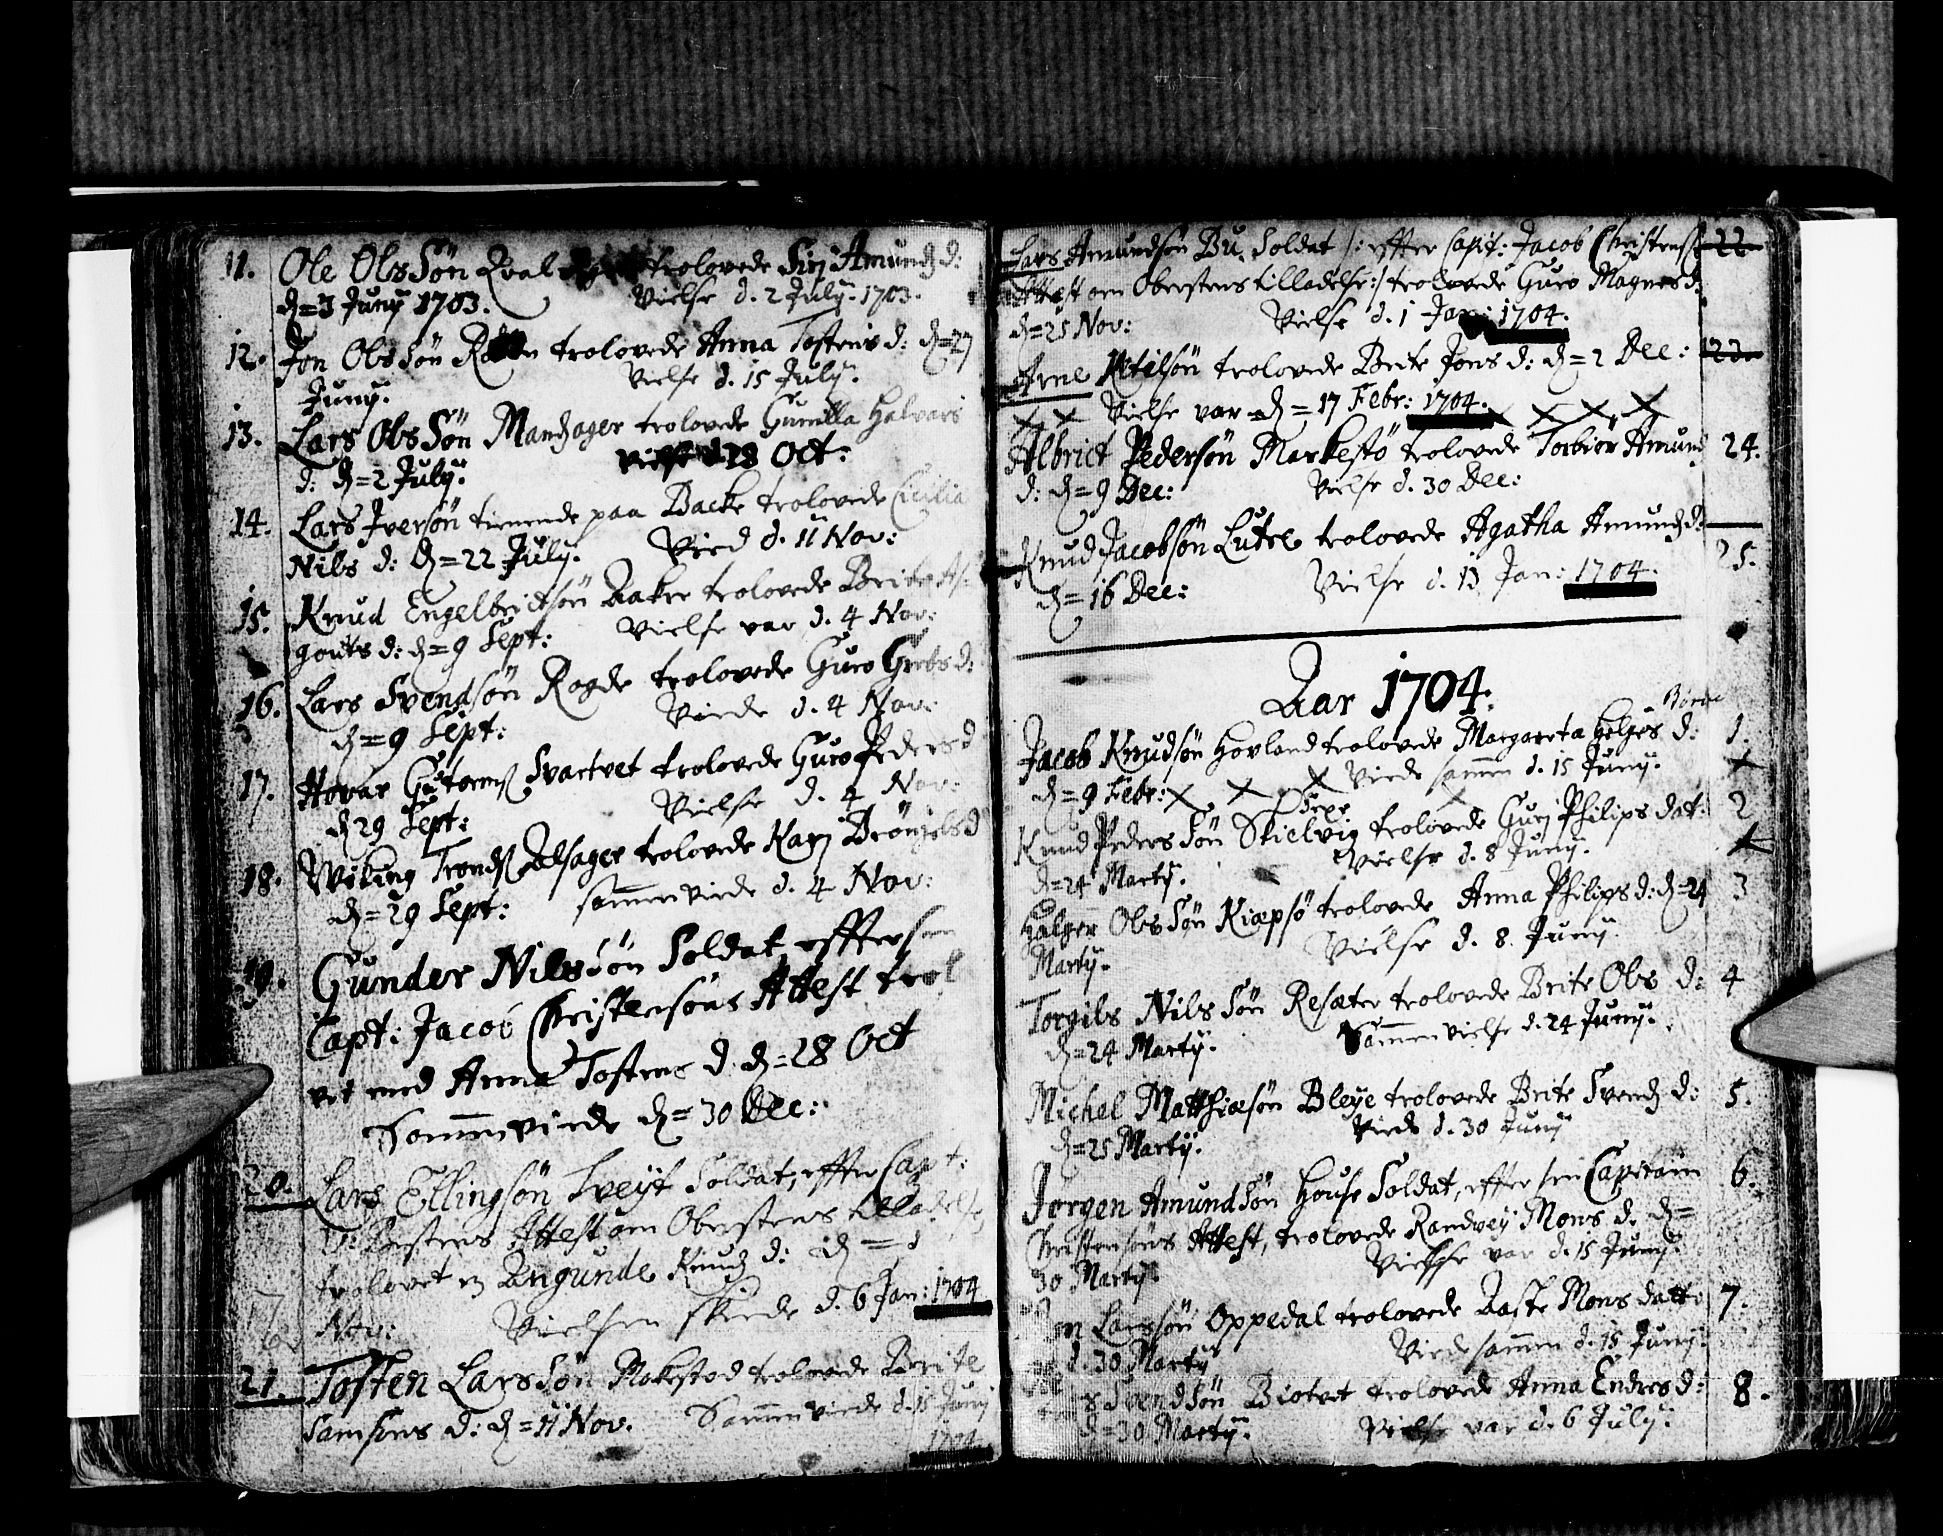 11. Ole OlsSön Qval trolovede Siri Amunds d:
d = 3 Juny 1703. Vielse d. 2 July. 1703.
12. Jon OlsSön trolovede Anna Tostens d: d = 27
Juny. Vielse d. 15 July.
13. Lars OlsSön Mandsager trolovede Gunilla Halvars
d: d = 2 July. Vielse d. 28 Oct:
14. Lars Iversön tienende paa Backe trolovede Cicilia
Nils d: d = 22 July. Vied d. 11 Nov:
15. Knud Engelbrictsön Aaker trolovede Brite As-
gouts d: d = 9 Sept: Vielse var d. 4 Nov:
16. Lars Svendsön Rogde trolovede Guro d:
d = 9 Sept: Viede d. 4 Nov:
17. Hovar Gutorms Svartvet trolovede Guro Peders d
d 29 Sept: Vielse d. 4 Nov:
18. Wiking Tronds Alsager trolovede Kari Brönjels d
d = 29 Sept: sammenviede d. 4 Nov:
19. Gunder NilsSön Soldat, effter sin
Capt: Jacob Christensöns Attest trol
vet med Anna Tostens d. d = 28 Oct
Sammenviede d = 30 Dec:
20. Lars Ellingsön Tveyt Soldat, effter Capt:
Attest om Oberstens tilladelse,
trolovet m Angunde Knuds d: d = 1
Nov: Vielsen skiede d. 6 Jan: 1704
21. Tosten LarsSön Mokestad trolovede Brite
Samsons d: d = 11 Nov. Sammenviede d. 15 Juny
1704.
Lars Amundsön Bu, Soldat /: effter Capit: Jacob Christens 22
Attest om Oberstens tilladelse:/ trolovede Guro Magnes d:
d = 25 Nov: Vielse d. 1 Jan: 1704.
Arne Ketilsön trolovede Brite Jons d: d = 2 Dec: 23
Vielse var d = 17 Febr: 1704.
Albrict Pedersön Markestö trolovede Torbiör Amunds 24.
d: d = 9 Dec: Vielse d. 30 Dec:
Knud Jacobsön Lutre trolovede Agatha Amunds d: 25.
d = 16 Dec: Vielse d. 13 Jan: 1704.
Aar 1704.
Jacob Knudsön Hovland trolovede Margareta Helges d: 1.
d = 9 Febr: Viede sammen d. 15 Juny.
Knud PedersSön Skielvig trolovede Guri Philips dat: 2
d = 24 Marty. Vielse d. 8 Juny.
Halger OlsSön Kiæpsö trolovede Anna Philips d: d = 24 3
Marty. Vielse d. 8 Juny.
Torgils NilsSön Resæter trolovede Brite Ols d: 4
d = 24 Marty. Sammenvielse d. 24 Juny.
Michel Matthiæsön Bleye trolovede Brite Svends d: 5.
d = 25 Marty. Viede d. 30 Juny
Jørgen AmundSön House Soldat, effter sin Capitain 6.
Christensöns Attest, trolovede Randvey Mons d. d =
30 Marty. Vielse var d. 15 Juny.
Larssön Oppedal trolovede Aaste Mons datt: 7.
d. 30 Marty Viede sammen d. 15 Juny.
SvendSön Biotvet trolovede Anna Endres d: 8.
d = 30 Marty. Vielse var d. 6 July.